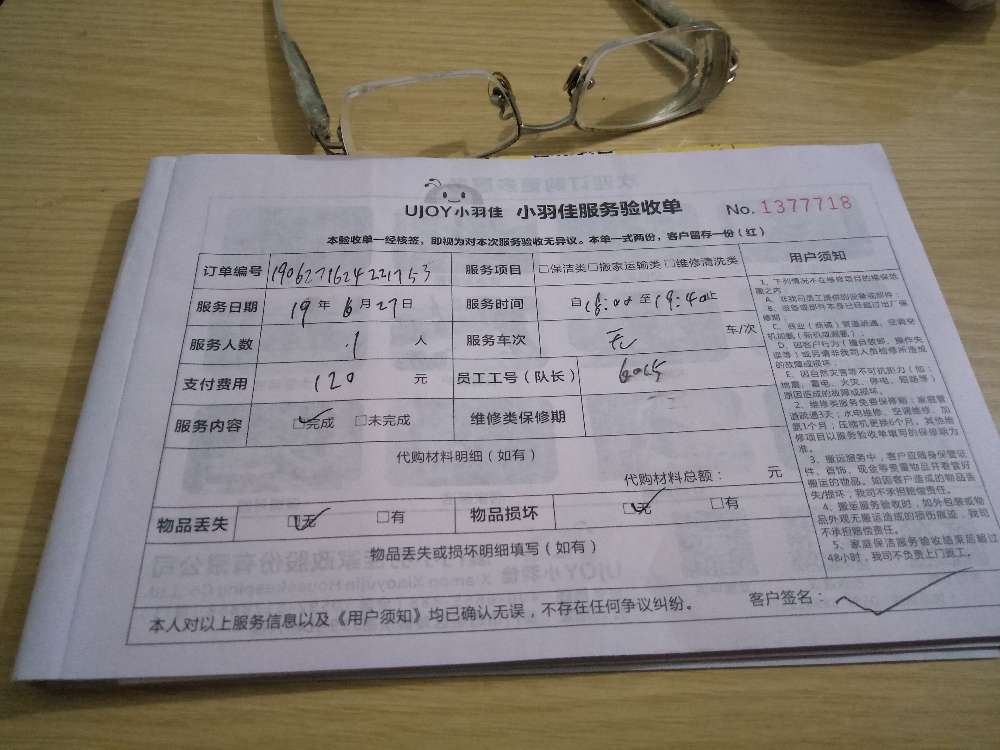 UJOY小羽佳 小羽佳服务验收单 No. 1377718
本验收单一经核签,即视为对本次服务验收无异议。本单一式两份,客户留存一份(红)
订单编号 1906271624221753 服务项目 □保洁类□搬家运输类□维修清洗类
服务日期 19年6月27日 服务时间 自18:00至19:40止
服务人数 1 人 服务车次 无 车/次
支付费用 120 元 员工工号(队长)
服务内容 □完成 □未完成 维修类保修期
代购材料明细(如有)
代购材料总额: 元
物品丢失 □无 □有 物品损坏 □无 □有
物品丢失或损坏明细填写(如有)
本人对以上服务信息以及《用户须知》均已确认无误,不存在任何争议纠纷。 客户签名:
用户须知
1、下列情况不在维修项目的维保范
围之内
A、非我司员工提供的设备或部件;
B、设备或部件本身已经超过出厂保
修期;
C、商业(商铺)管道疏通、空调空
机加氨(新机或漏氨);
D、因客户行为(擅自破卸、操作失
误等)或另请非我司人员检修所造成
的故障或损坏;
E、因自然灾害等不可抗拒力(如:
地震、雷电、火灾、停电、短路等)
原因造成的故障或损坏。
2、维修类服务免费保修期:家庭管
道疏通3天;水电维修、空调维修、加
氨1个月;压缩机更换6个月。其他维
修项目以服务验收单填写的保修期为
准。
3、搬运服务中,客户应随身保管证
件、首饰、现金等贵重物品并看管好
搬运的物品。如因客户造成的物品丢
失/损坏,我司不承担赔偿责任。
4、搬运服务验收时,如外包装或物
品外观无搬运造成的损伤痕迹,我司
不承担赔偿责任。
5、家庭保洁服务验收结束后超过
48小时,我司不负责上门返工。